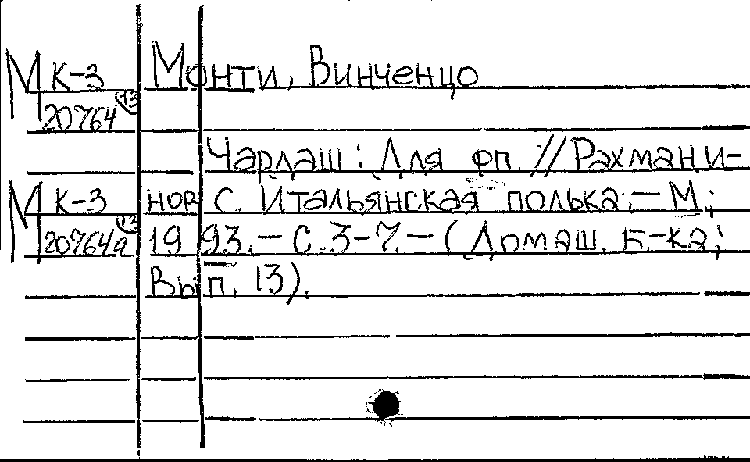 М К-3 Монти, Винченцо
20764 13
Чарлаш: Для фп // Рахмани-
М К-3 нов С. Итальянская полька.— М.;
20764а 13 1993.— С.3-7.— (Домаш. б-ка;
Вып. 13).